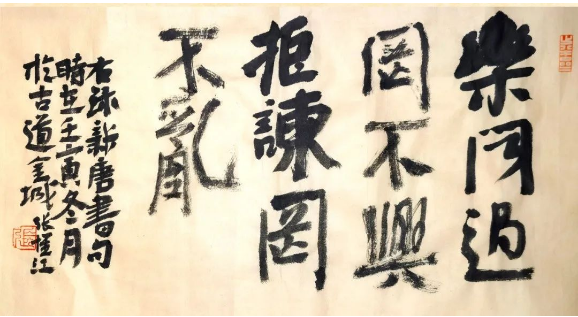 樂聞過
罔不興
拒諫罔
不亂
右錄新唐書句
時在壬寅冬月
於古道金城 张江